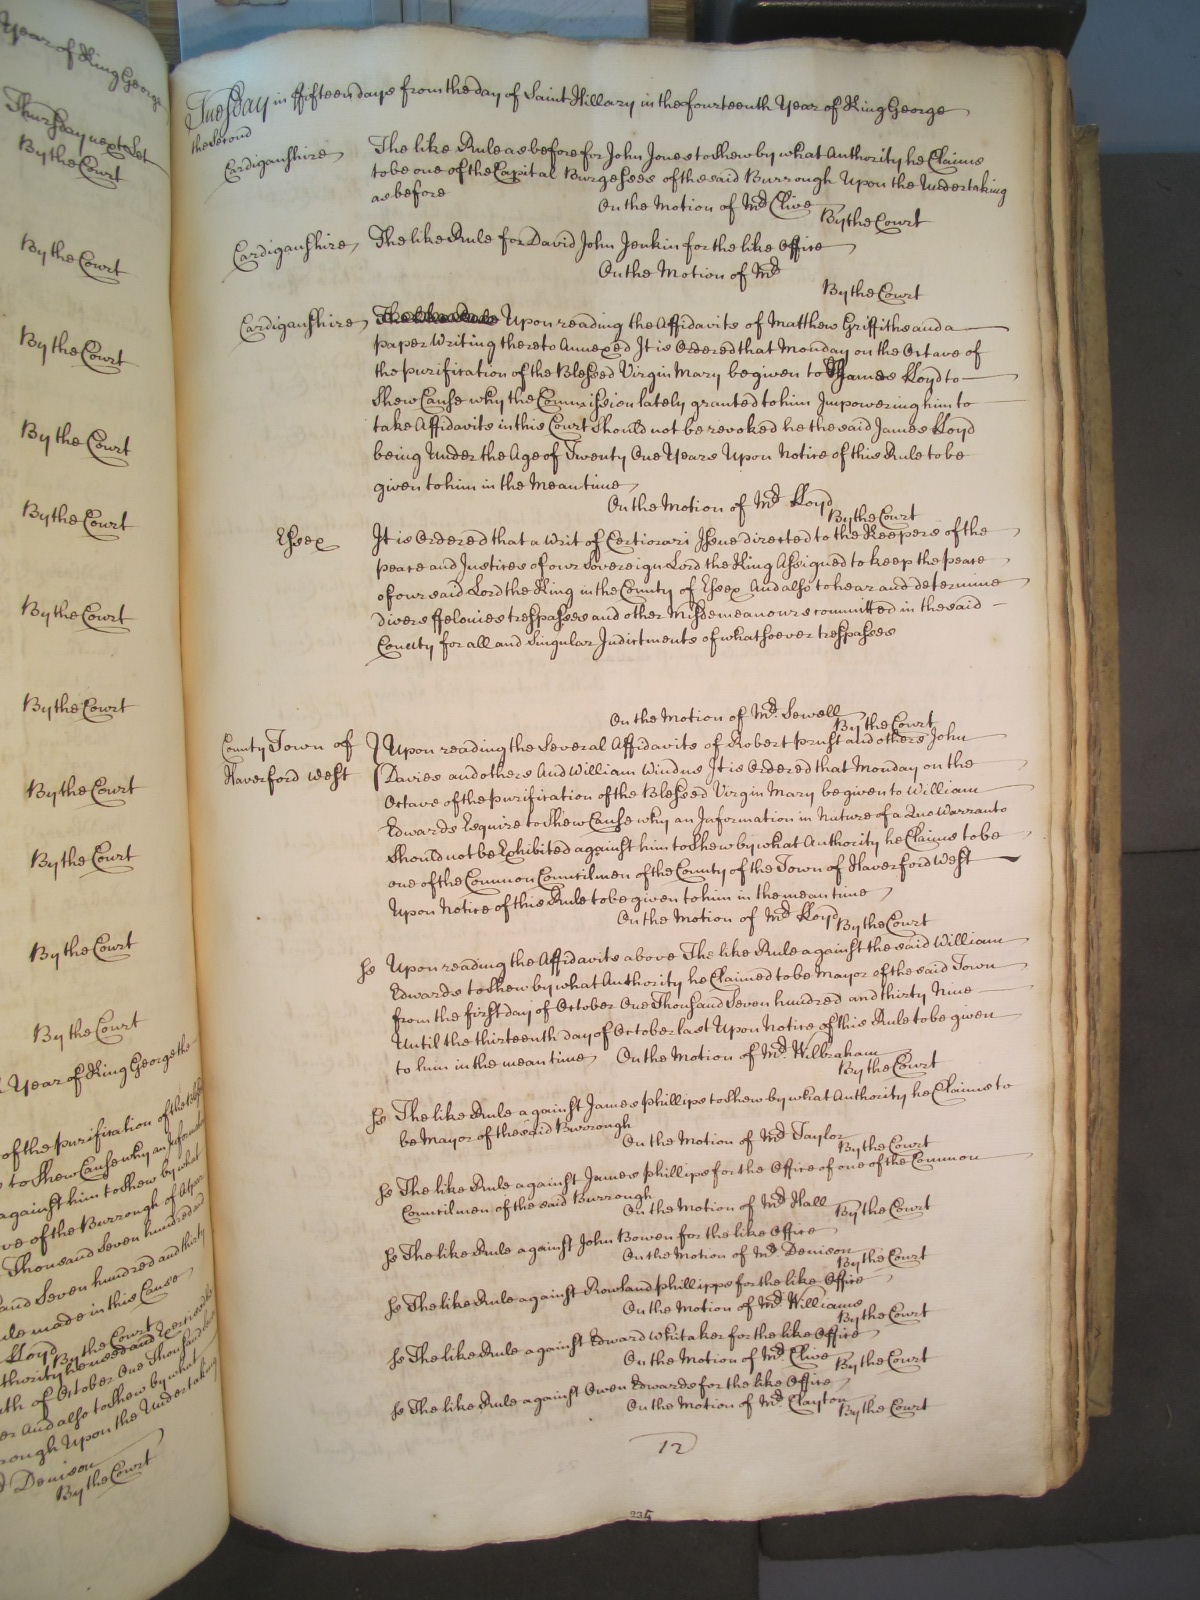 Year of King George
Thursday next Set
By the Court
By the Court
By the Court
By the Court
By the Court
By the Court
By the Court
By the Court
By the Court
By the Court
By the Court
Year of King George the
of the purification of the
to Shew Cause why an
against him to Shew by what
of the Burrough of
Thousand Seven hundred and
and Seven hundred and thirty
made in this Cause
Lloyd By the Court
of October One Thousand
And also to Shew by what
Upon the Undertaking
Denison
By the Court
Tuesday in ffifteen days from the day of Saint Hillary in the fourteenth Year of King George
the Second
Cardiganshire The like Rule as before for John Jones to Shew by what Authority he Claims
to be one of the Capital Burgesses of the said Burrough Upon the Undertaking
as before On the Motion of Mr. Clive By the Court
Cardiganshire The like Rule for David John Jenkin for the like Office
On the Motion of Mr.
By the Court
Cardiganshire Upon reading the Affidavits of Matthew Griffiths and a
paper Writing thereto Annexed It is Ordered that Monday on the Octave of
the purification of the Blessed Virgin Mary be given to James Lloyd to
Shew Cause why the Commission lately granted to him Impowering him to
take Affidavits in this Court Should not be revoked he the said James Lloyd
being Under the Age of Twenty One Years Upon Notice of this Rule to be
given to him in the Mean time
On the Motion of Mr. Lloyd By the Court
Essex It is Ordered that a Writ of Certiorari Issue directed to the Keepers of the
peace and Justices of our Sovereign Lord the King Assigned to keep the peace
of our said Lord the King in the County of Essex And also to hear and determine
divers ffelonies trespasses and other Misdemeanours committed in the said
County for all and Singular Indictments of whatsoever trespasses
On the Motion of Mr. Sewell By the Court
County Town of Upon reading the Several Affidavits of Robert Prust and others John
Haverford West Davies and others And William Windus It is Ordered that Monday on the
Octave of the purification of the Blessed Virgin Mary be given to William
Edwards Esquire to Shew Cause why an Information in Nature of a Quo Warranto
Should not be Exhibited against him to Shew by what Authority he Claims to be
one of the Common Councilmen of the County of the Town of Haverford West
Upon Notice of this Rule to be given to him in the mean time
On the Motion of Mr. Lloyd By the Court
Ss Upon reading the Affidavits above The like Rule against the said William
Edwards to Shew by what Authority he Claimed to be Mayor of the said Town
from the first day of October One Thousand Seven hundred and thirty Nine
Until the thirteenth day of October last Upon Notice of this Rule to be given
to him in the mean time On the Motion of Mr. Wilbraham By the Court
Ss The like Rule against James Phillips to Shew by what Authority he Claims to
be Mayor of the said Burrough
On the Motion of Mr. Taylor By the Court
Ss The like Rule against James Phillips for the Office of one of the Common
Councilmen of the said Burrough
On the Motion of Mr. Hall By the Court
Ss The like Rule against John Bowen for the like Office
On the Motion of Mr. Denison By the Court
Ss The like Rule against Rowland Phillipps for the like Office
On the Motion of Mr. Williams By the Court
Ss The like Rule against Edward Whitaker for the like Office
On the Motion of Mr. Clive By the Court
Ss The like Rule against Owen Edwards for the like Office
On the Motion of Mr. Clayton By the Court
12
235